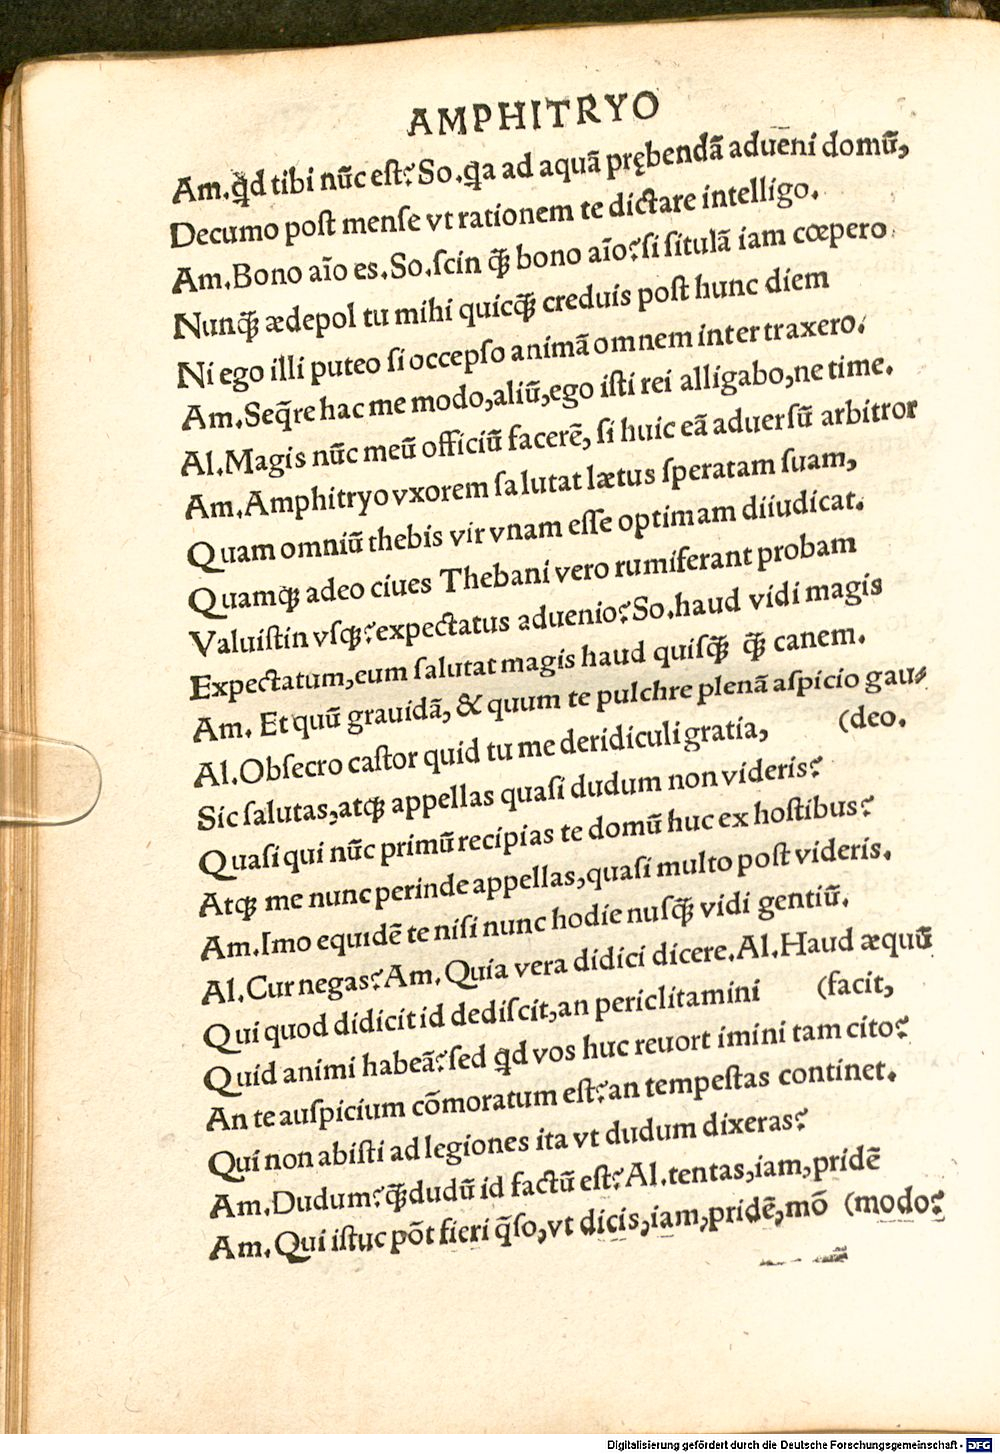 AMPHITRYO
Am.qͥd tibi nūc eſt? So.qͥa ad aquā prębendā adueni domū,
Decumo poſt menſe vt rationem te dictare intelligo.
Am.Bono aīo es.So.ſcin qꝫ̄ bono aīo? ſi ſitulā iam cœpero
Nunqꝫ̄ ædepol tu mihi quicqꝫ̄ creduis poſt hunc diem
Ni ego illi puteo ſi occepſo animā omnem inter traxero.
Am.Seq̄re hac me modo,aliū,ego iſti rei alligabo,ne time.
Al.Magis nūc meū officiū facerē, ſi huic eā aduerſū arbitror
Am.Amphitryo vxorem ſalutat lætus ſperatam ſuam,
Quam omniū thebis vir vnam eſſe optimam diiudicat.
Quamqꝫ adeo ciues Thebani vero rumiferant probam
Valuiſtin vſqꝫ? expectatus aduenio? So.haud vidi magis
Expectatum,eum ſalutat magis haud quiſqꝫ̄ qꝫ̄ canem.
Am. Et quū grauidā, & quum te pulchre plenā aſpicio gau⸗
Al.Obſecro caſtor quid tu me deridiculi gratia, (deo.
Sic ſalutas,atqꝫ appellas quaſi dudum non videris?
Quaſi qui nūc primū recipias te domū huc ex hoſtibus?
Atqꝫ me nunc perinde appellas,quaſi multo poſt videris.
Am.Imo equidē te niſi nunc hodie nuſqꝫ̄ vidi gentiū.
Al.Cur negas? Am.Quia vera didici dicere.Al.Haud æquū
Qui quod didicit id dediſcit,an periclitamini (facit,
Quid animi habeā? ſed qͥd vos huc reuort imini tam cito?
An te auſpicium cōmoratum eſt? an tempeſtas continet.
Qui non abiſti ad legiones ita vt dudum dixeras?
Am.Dudum? qꝫ̄dudū id factū eſt? Al.tentas,iam,pridē
Am.Qui iſtuc pōt fieri q̄ſo,vt dicis,iam,pridē,mō (modo?
Digitalisierung gefördert durch die Deutsche Forschungsgemeinschaft - DFG